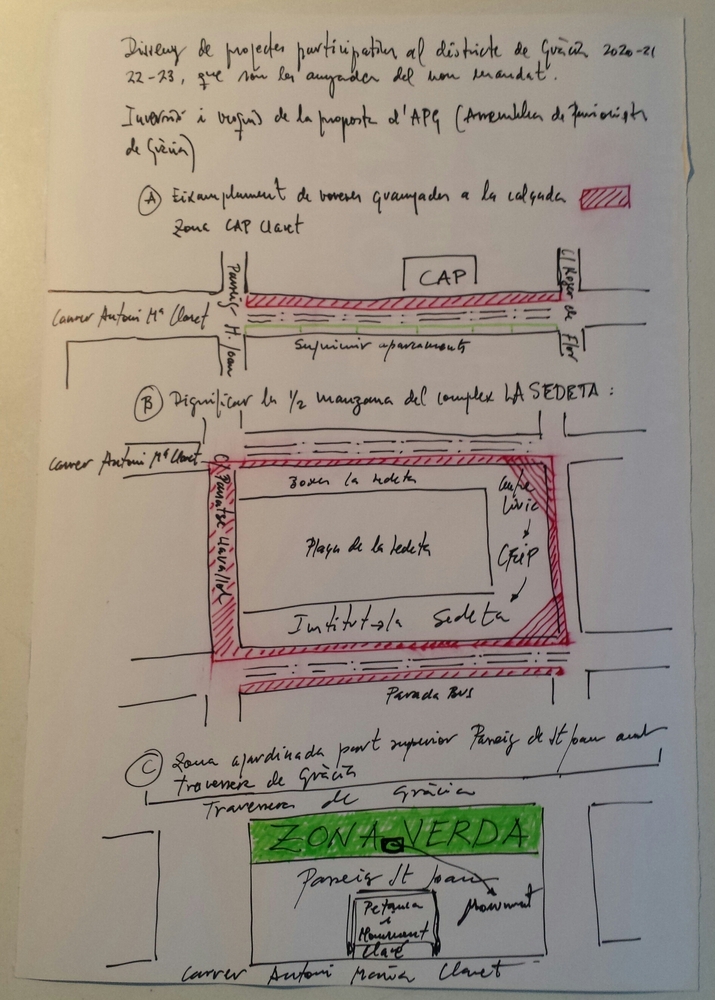 Disseny de projectes participatius al districte de Gràcia 2020-21
22-23, que són les anyades del nou mandat.
Inversió i de la proposta d'APG (Assemblea de
de Gràcia)
A Eixamplament de voreres guanyades a la calçada
Zona CAP Claret
Passeig St Joan
CAP
C/ Roger de Flor
Carrer Antoni Mª Claret
Suprimir aparcaments
B Dignificar la 1/2 manzana del complex LA SEDETA :
Carrer Antoni Mª Claret
Boxes la Sedeta
Centre
Cívic
Plaça de la Sedeta
CEIP
Institut la Sedeta
Parada Bus
C Zona ajardinada part superior Passeig de St Joan amb
Travessera de Gràcia
Travessera de Gràcia
ZONA VERDA
Passeig St Joan
Monument
Petanca
i
Monument
Clavé
Carrer Antoni Maria Claret